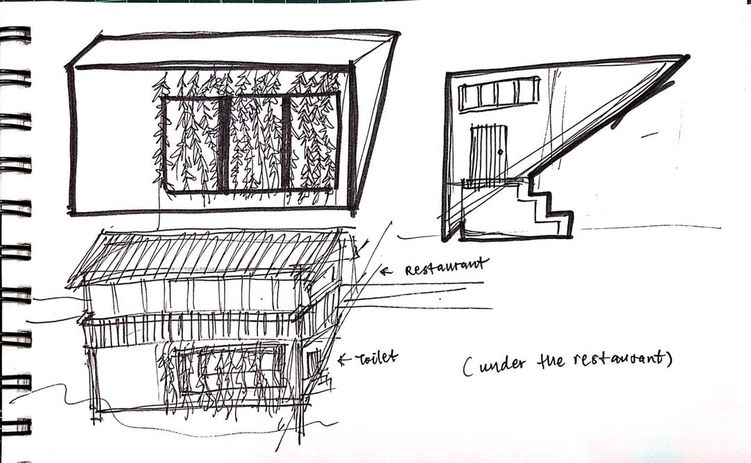 restaurant
toilet
(under the restaurant)